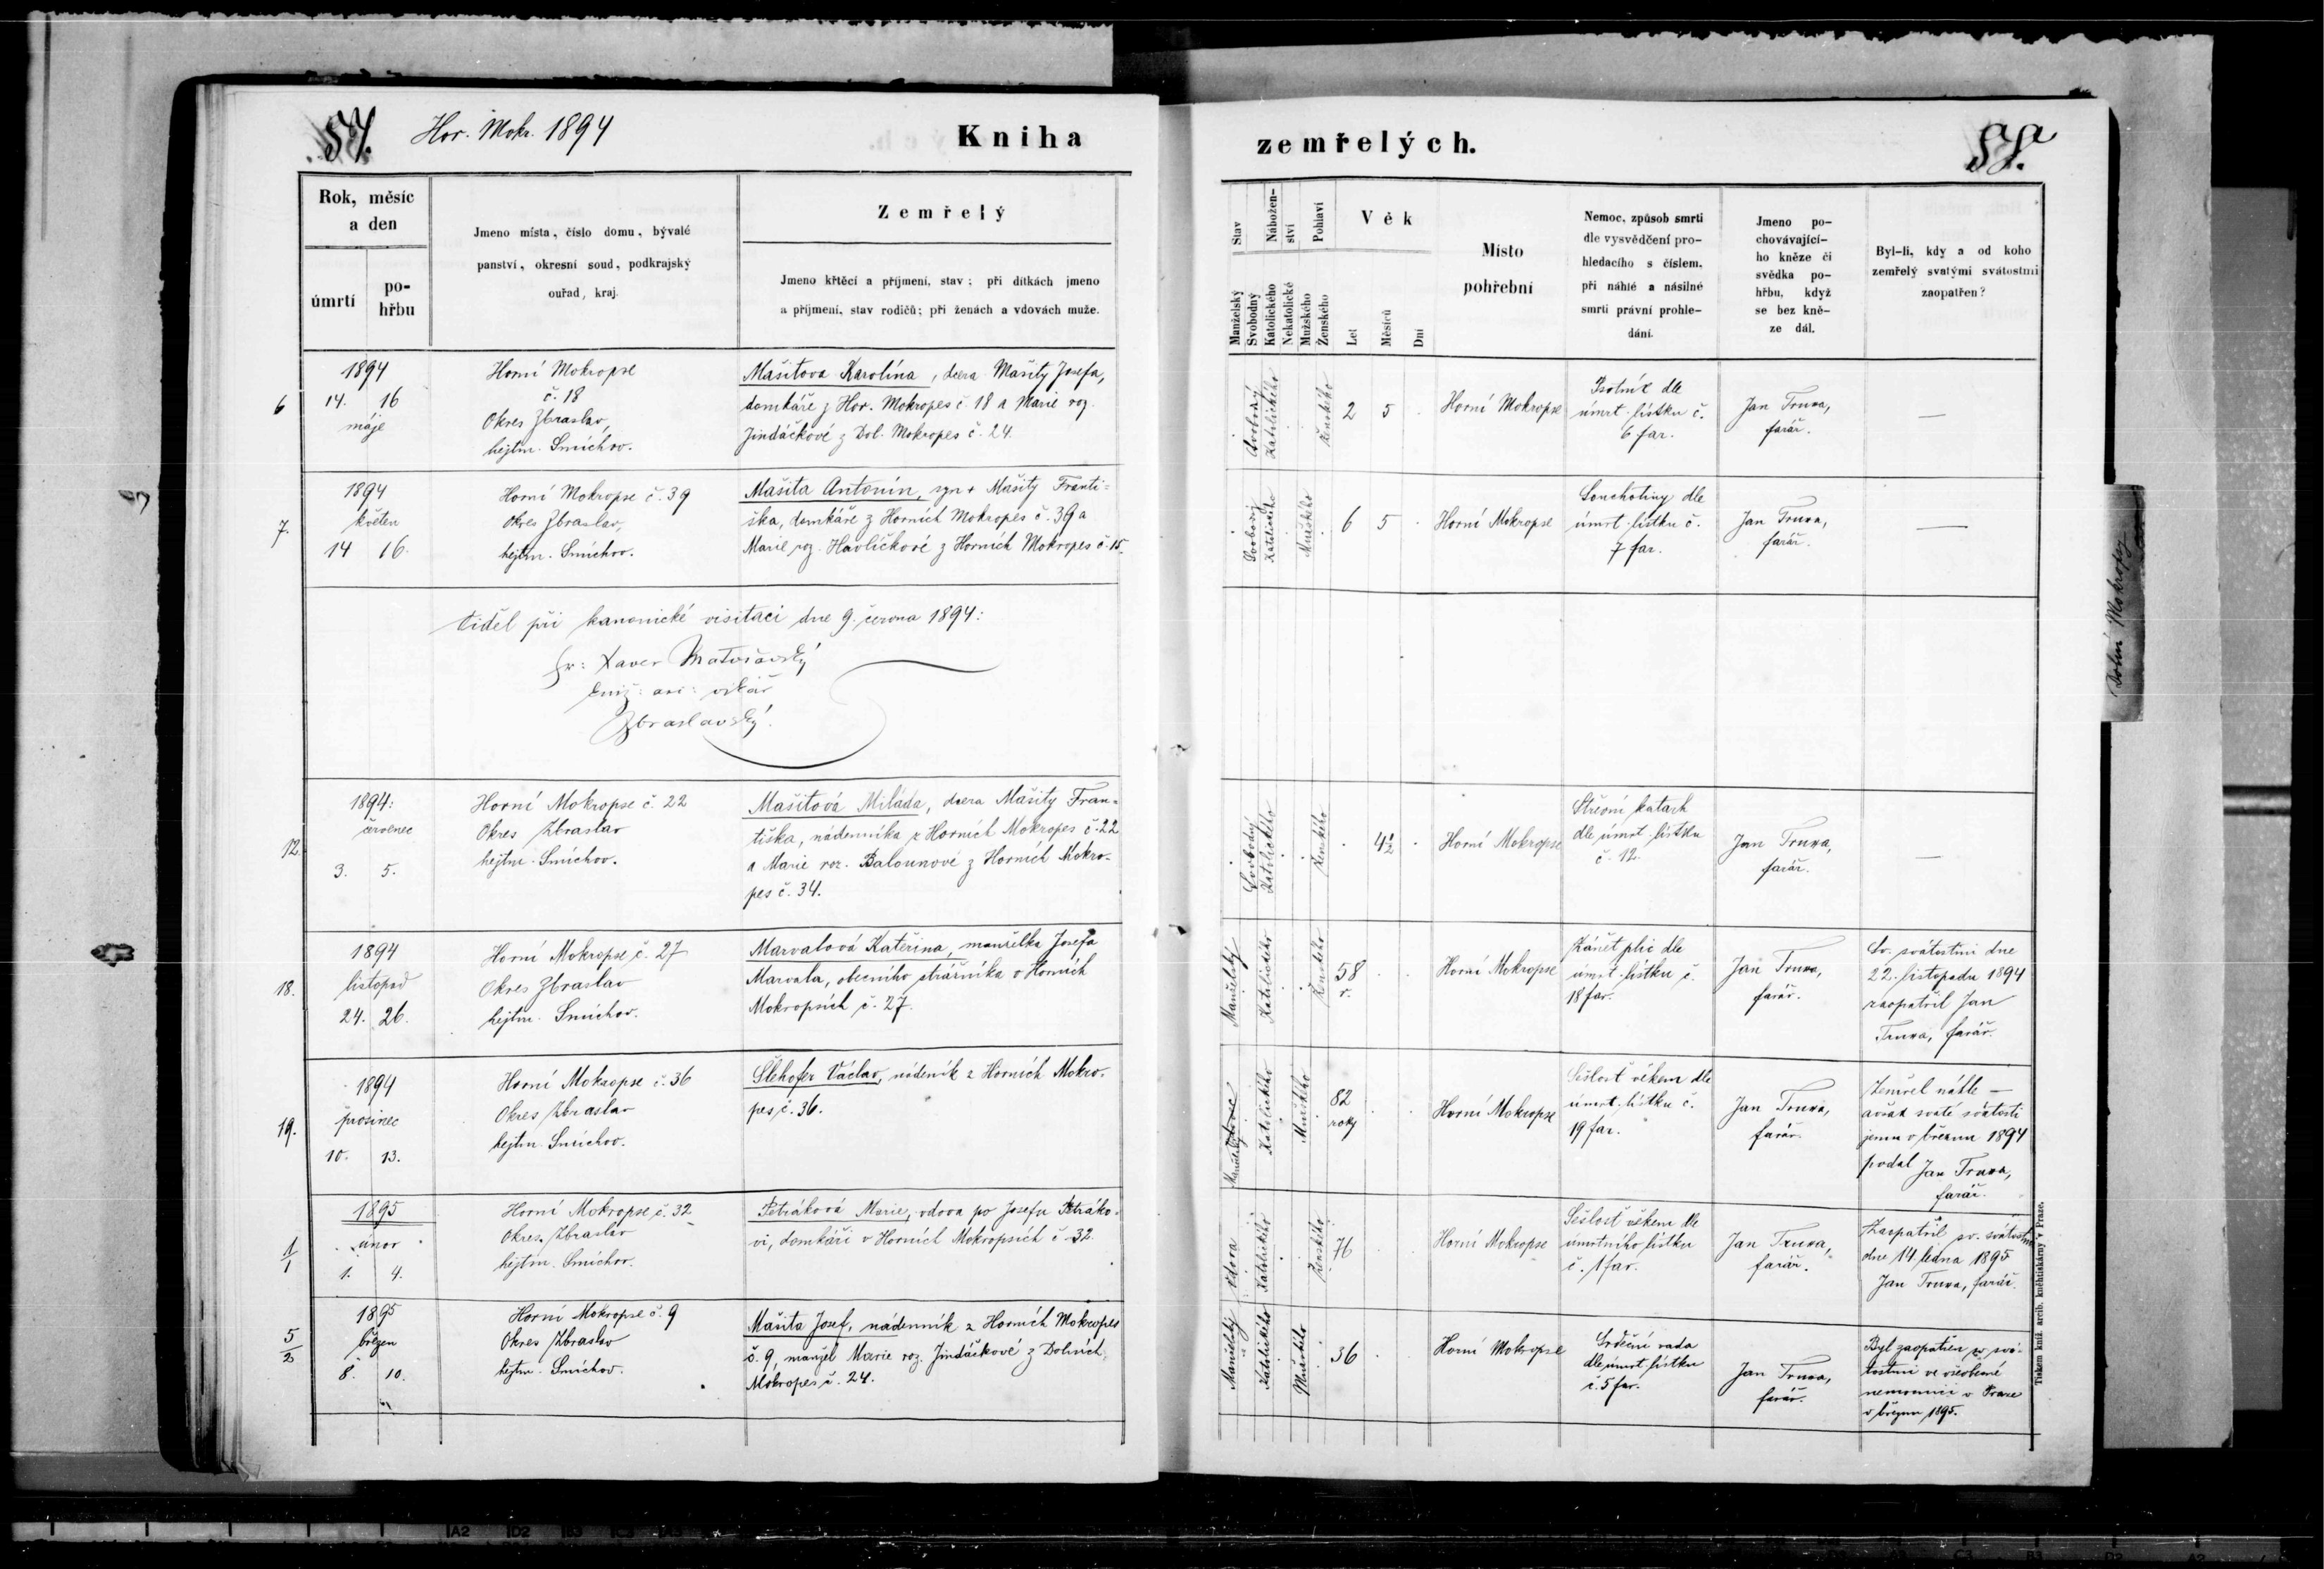 57.
Hor. Mokr. 1894
Kniha
zemřelých.
Rok, měsíc
a den
úmrtí
po-
hřbu
Jmeno místa, číslo domu, bývalé
panství, okresní soud, podkrajský
ouřad, kraj.
Zemřelý
Jmeno křtěcí a příjmení, stav; při dítkách jmeno
a příjmení, stav rodičů; při ženách a vdovách muže.
Stav
Nábožen-
ství
Pohlaví
Manželský
Svobodný
Katolického
Nekatolické
Mužského
Ženského
Věk
Let
Měsíců
Dní
Místo
pohřební
Nemoc, způsob smrti
dle vysvědčení pro-
hledacího s číslem,
při náhlé a násilné
smrti právní prohle-
dání.
Jmeno po-
chovávající-
ho kněze či
svědka po-
hřbu, když
se bez kně-
ze dál.
Byl-li, kdy a od koho
zemřelý svatými svátostmi
zaopatřen?
6
1894
14. 16
máje
Horní Mokropse
č. 18
Okres Zbraslav,
hejtm. Smíchov.
Mašitova Karolína, dcera Mašity Josefa,
domkáře z Hor. Mokropes č. 18 a Marie roz.
Jindáčkové z Dol. Mokropes č. 24.
Svobodný
Katolického
Ženského
2 5
Horní Mokropse
Psotník dle
úmrt. lístku č.
6 far.
Jan Truxa,
farář.
—
7.
1894
květen
14 16.
Horní Mokropse č. 39
Okres Zbraslav,
hejtm. Smíchov.
Mašita Antonín, syn + Mašity Franti=
ška, domkáře z Horních Mokropes č. 39 a
Marie roz. Havlíčkové z Horních Mokropes č. 15.
Svobodný
Katolického
Mužského
6 5
Horní Mokropse
Souchotiny dle
úmrt. lístku č.
7 far.
Jan Truxa,
farář.
—
Viděl při kanonické visitaci dne 9. června 1894:
Fr: Xaver
vikář
Zbraslavský.
12.
1894:
červenec
3. 5.
Horní Mokropse č. 22
Okres Zbraslav
hejtm. Smíchov.
Mašitová Miláda, dcera Mašity Fran=
tiška, nádenníka z Horních Mokropes č. 22
a Marie roz. Balounové z Horních Mokro-
pes č. 34.
Svobodný
Katolického
Ženského
4½
Horní Mokropse
Střevní katarh
dle úmrt. lístku
č. 12.
Jan Truxa,
farář.
—
18.
1894
listopad
24. 26.
Horní Mokropse č. 27
Okres Zbraslav
hejtm. Smíchov.
Marvalová Kateřina, manželka Josefa
Marvala, obecního strážníka v Horních
Mokropsích č. 27.
Manželský
Katolického
Ženského
58
r.
Horní Mokropse
Zánět plic dle
úmrt. lístku č.
18 far.
Jan Truxa,
farář.
Sv. svátostmi dne
22. listopadu 1894
zaopatřil Jan
Truxa, farář.
19.
1894
prosinec
10. 13.
Horní Mokropse č. 36
Okres Zbraslav
hejtm. Smíchov.
Šlehofer Václav, nádeník z Horních Mokro-
pes č. 36.
Vdovec
Katolického
Mužského
82
roky
Horní Mokropse
Sešlosť věkem dle
úmrt. lístku č.
19 far.
Jan Truxa,
farář.
Zemřel náhle —
avšak svaté svátosti
jemu v březnu 1894
podal Jan Truxa,
farář.
1/1
1895
únor
1. 4.
Horní Mokropse č. 32
Okres Zbraslav
hejtm. Smíchov.
Petráková Marie, vdova po Josefu Petráko-
vi, domkáři v Horních Mokropsích č. 32.
Vdova
Katolického
Ženského
76
Horní Mokropse
Sešlosť věkem dle
úmrtního lístku
č. 1 far.
Jan Truxa,
farář.
Zaopatřil sv. svátostmi
dne 14. ledna 1895
Jan Truxa, farář.
5/2
1895
březen
8. 10.
Horní Mokropse č. 9
Okres Zbraslav
hejtm. Smíchov.
Mašita Josef, nádenník z Horních Mokropes
č. 9, manžel Marie roz. Jindáčkové z Dolních
Mokropes č. 24.
Manželský
Katolického
Mužského
36
Horní Mokropse
Srdeční vada
dle úmrt. lístku
č. 5 far.
Jan Truxa,
farář.
Byl zaopatřen sv. svá-
tostmi ve všeobecné
nemocnici v Praze
v březnu 1895.
Tiskem kníž. arcib. knéhtiskárny v Praze.
Dolní Mokropsy
A2 D2 B3 C3 A3